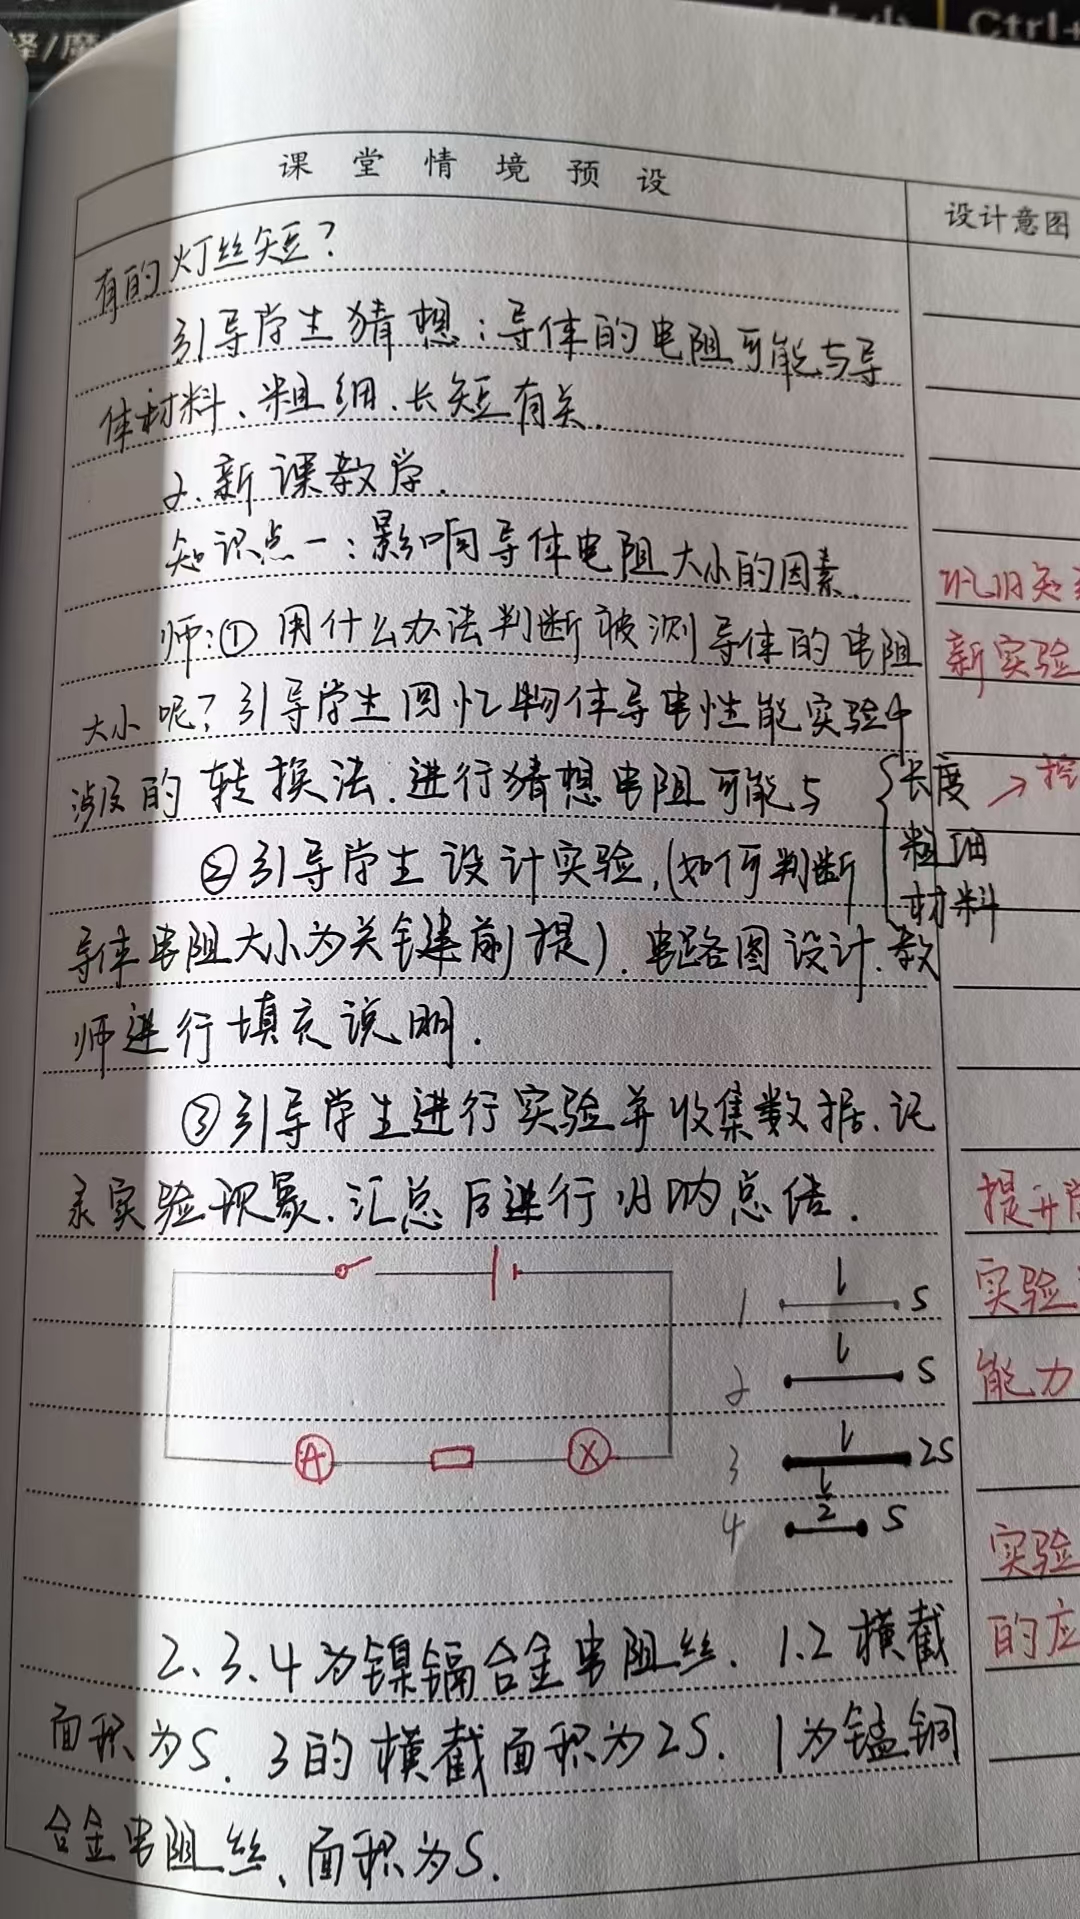 Ctrl+
课堂情境预设
设计意图
有的灯丝短?
引导学生猜想:导体的电阻可能与导
体材料、粗细、长短有关.
2.新课教学.
知识点一:影响导体电阻大小的因素.
师:①用什么办法判断被测导体的电阻
大小呢?引导学生回忆物体导电性能实验中
涉及的转换法.进行猜想电阻可能与
长度
粗细
材料
②引导学生设计实验,(如何判断
导体电阻大小为关键前提).电路图设计.教
师进行填充说明.
③引导学生进行实验并收集数据.记
录实验现象.汇总后进行归纳总结.
A
X
1 l S
2 l S
3 l 2S
4 l/2 S
2、3、4为镍镉合金电阻丝、1.2横截
面积为S.3的横截面积为2S. 1为锰铜
合金电阻丝、面积为S.
旧知
新实验
提升
实验
能力
实验
的应